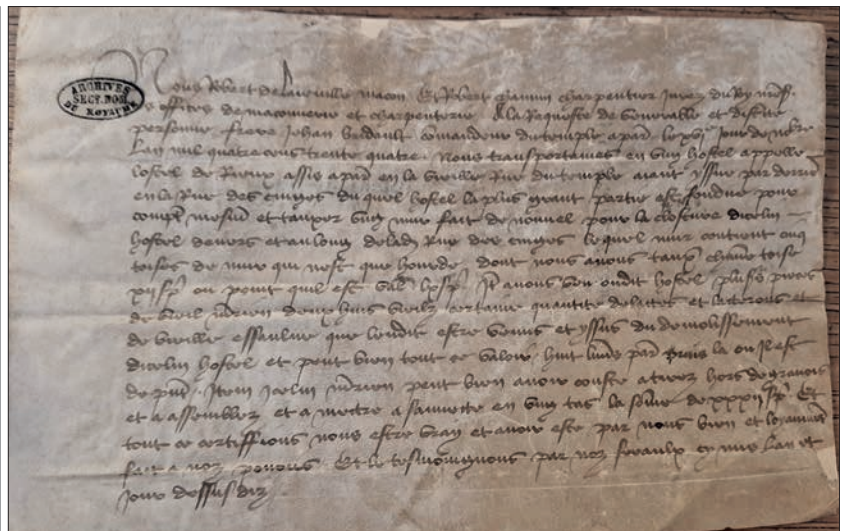 ARCHIVES
SECT. DOM.
DU ROYAUME
Nous Robert de macon Et Robert charpentier Jurez du Roy noss.
es offices de maconnerie et charpenterie A la Requeste de honorable et
personne frere Jehan commandeur du temple a paris le jour de
Lan mil quatre cens trente quatre. Nous transportames en ung hostel appelle
lostel de Rieux assis a paris en la vieille Rue du temple aiant yssue par derriere
en la Rue des cinges du quel hostel la plus grant partie est fondue pour
et tauxer ung mur fait de nouvel pour la closture dicelui
hostel devers et au long de lad. Rue des cinges le quel mur contient cinq
toises de mur qui nest que hourde dont nous avons chacune toise
xii s. p. ou point quil est Item avons veu oudit hostel plusieurs pieces
de viel merrien deux huis vielz certaine quantite de lates et et
de vieille que lendit estre venus et yssus du demolissement
dicelui hostel et peut bien tout ce valoir huit livres par. la ou Il est
de Item Icelui merrien peut bien avoir couste a tirer hors de gravois
et a assembler et a mectre a sauvete en ung tas la somme de xxxii s. p. Et
tout ce certiffions nous estre vray et avoir este par nous bien et loyaument
fait a noz povoirs. Et le tesmoignons par noz seaulx cy mis Lan et
Jour dessus diz